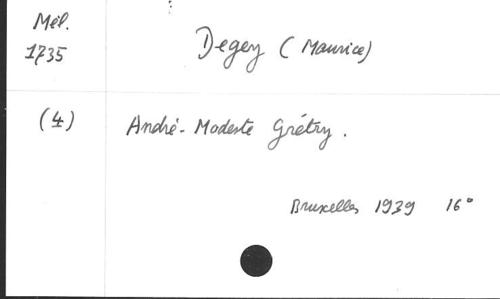 Mél.
1735
Degey (Maurice)
(4)
André-Modeste Grétry.
Bruxelles 1939 16°